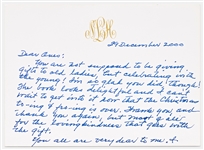 29 December 2000
Dear Ones:
You are not supposed to be giving
gift to old ladies, but celebrating with
the young! I'm so glad you did though!
The book looks delightful and I can't
wait to get into it now that the Christmas
to-ing & fro-ing is over. Thank you and
thank you again, but most of all
for the lovingkindness that goes with
the gift.
You all are very dear to me &